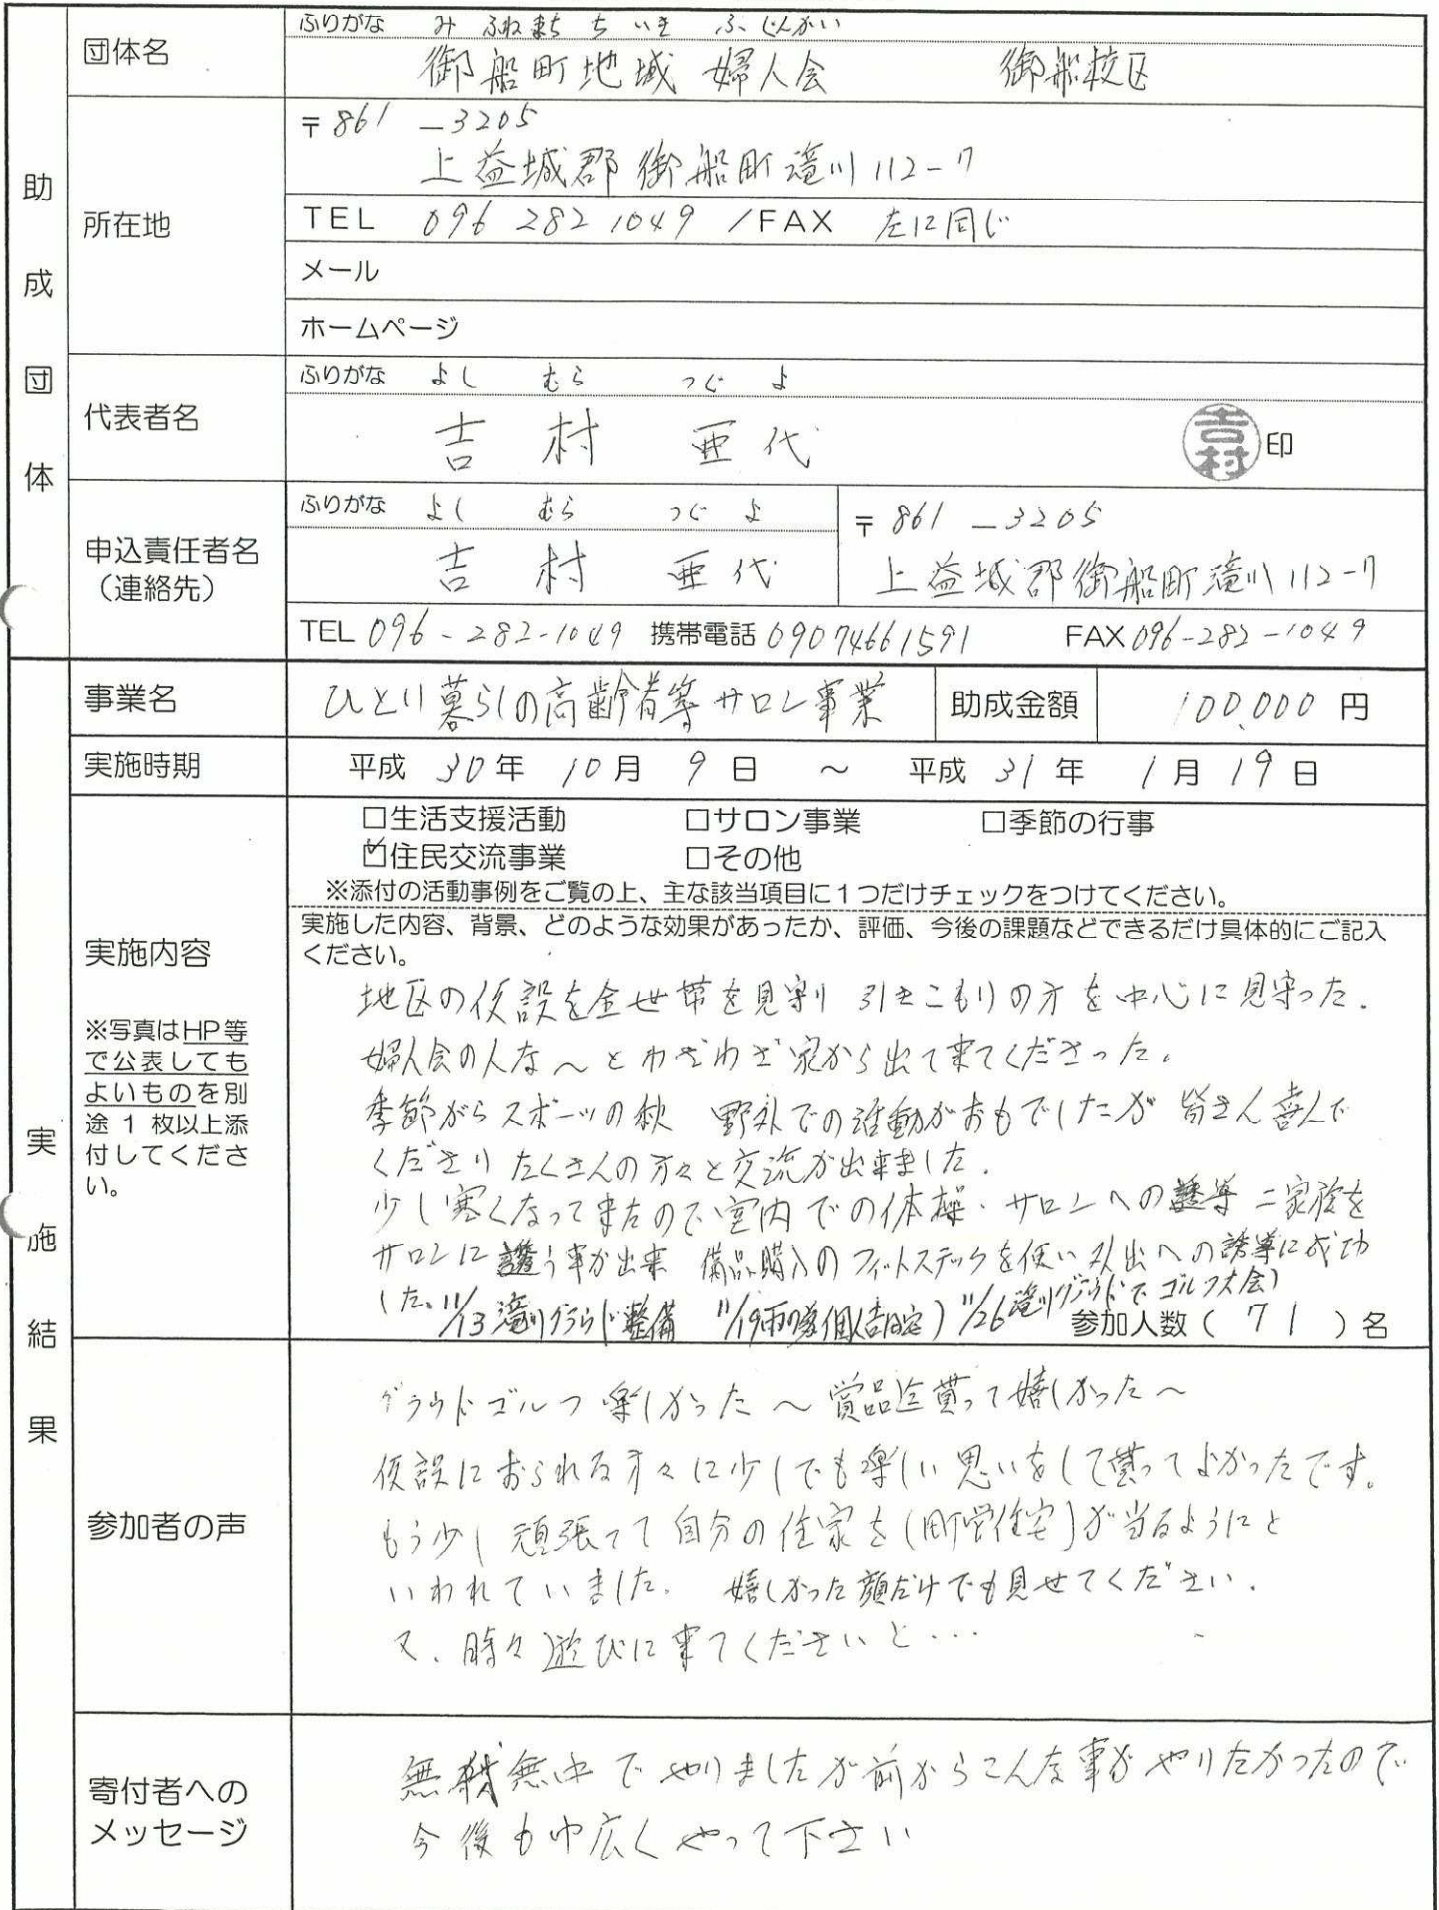 助成団体
団体名
ふりがな みふねまち ちいき ふじんかい
御船町地域 婦人会 御船校区
所在地
〒861-3205
上益城郡御船町滝川112-7
TEL 096 282 1049 /FAX 左に同じ
メール
ホームページ
代表者名
ふりがな よし むら つぐ よ
吉村 亜代 吉村 印
申込責任者名
(連絡先)
ふりがな よし むら つぐ よ
吉村 亜代
〒861-3205
上益城郡御船町滝川112-7
TEL 096-282-1049 携帯電話 09074661591 FAX 096-282-1049
実施結果
事業名 ひとり暮らしの高齢者等サロン事業 助成金額 100,000円
実施時期 平成30年10月9日 ～ 平成31年1月19日
実施内容
※写真はHP等
で公表しても
よいものを別
途1枚以上添
付してくださ
い。
□生活支援活動 □サロン事業 □季節の行事
☑住民交流事業 □その他
※添付の活動事例をご覧の上、主な該当項目に1つだけチェックをつけてください。
実施した内容、背景、どのような効果があったか、評価、今後の課題などできるだけ具体的にご記入
ください。
地区の仮設を全世帯を見守り 引きこもりの方を中心に見守った.
婦人会の人な～とわざわざ家から出て来てくださった。
季節がらスポーツの秋 野外での活動がおもでしたが 皆さん喜んで
くださり たくさんの方々と交流が出来ました.
少し寒くなって来たので室内での体操・サロンへの誘導 二家族を
サロンに誘う事が出来 備品購入のフィットステックを使い外出への誘導に成功
した。11/13滝川グラウンド整備 11/19雨の為個人宅 11/26滝川グラウンドでゴルフ大会)
参加人数(71)名
参加者の声
グラウンドゴルフ楽しかった～賞品迄貰って嬉しかった～
仮設におられる方々に少しでも楽しい思いをして貰ってよかったです。
もう少し頑張って自分の住家を(町営住宅)が当るようにと
いわれていました. 嬉しかった顔だけでも見せてください.
又、時々遊びに来てくださいと・・・
寄付者への
メッセージ
無中でやりましたが前からこんな事がやりたかったので
今後も巾広くやって下さい